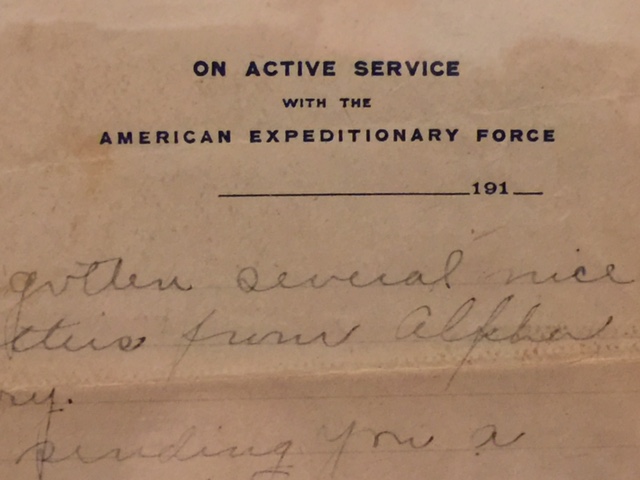 ON ACTIVE SERVICE
WITH THE
AMERICAN EXPEDITIONARY FORCE
191
gotten several nice
from Alpha
sending you a